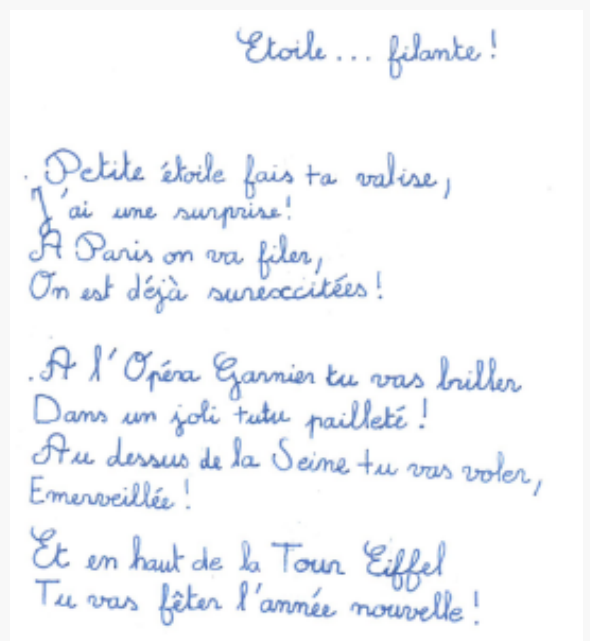 Etoile... filante !
. Petite étoile fais ta valise,
J'ai une surprise!
A Paris on va filer,
On est déjà surexcitées !
. A l'Opéra Garnier tu vas briller
Dans un joli tutu pailleté !
Au dessus de la Seine tu vas voler,
Emerveillée !
Et en haut de la Tour Eiffel
Tu vas fêter l'année nouvelle !